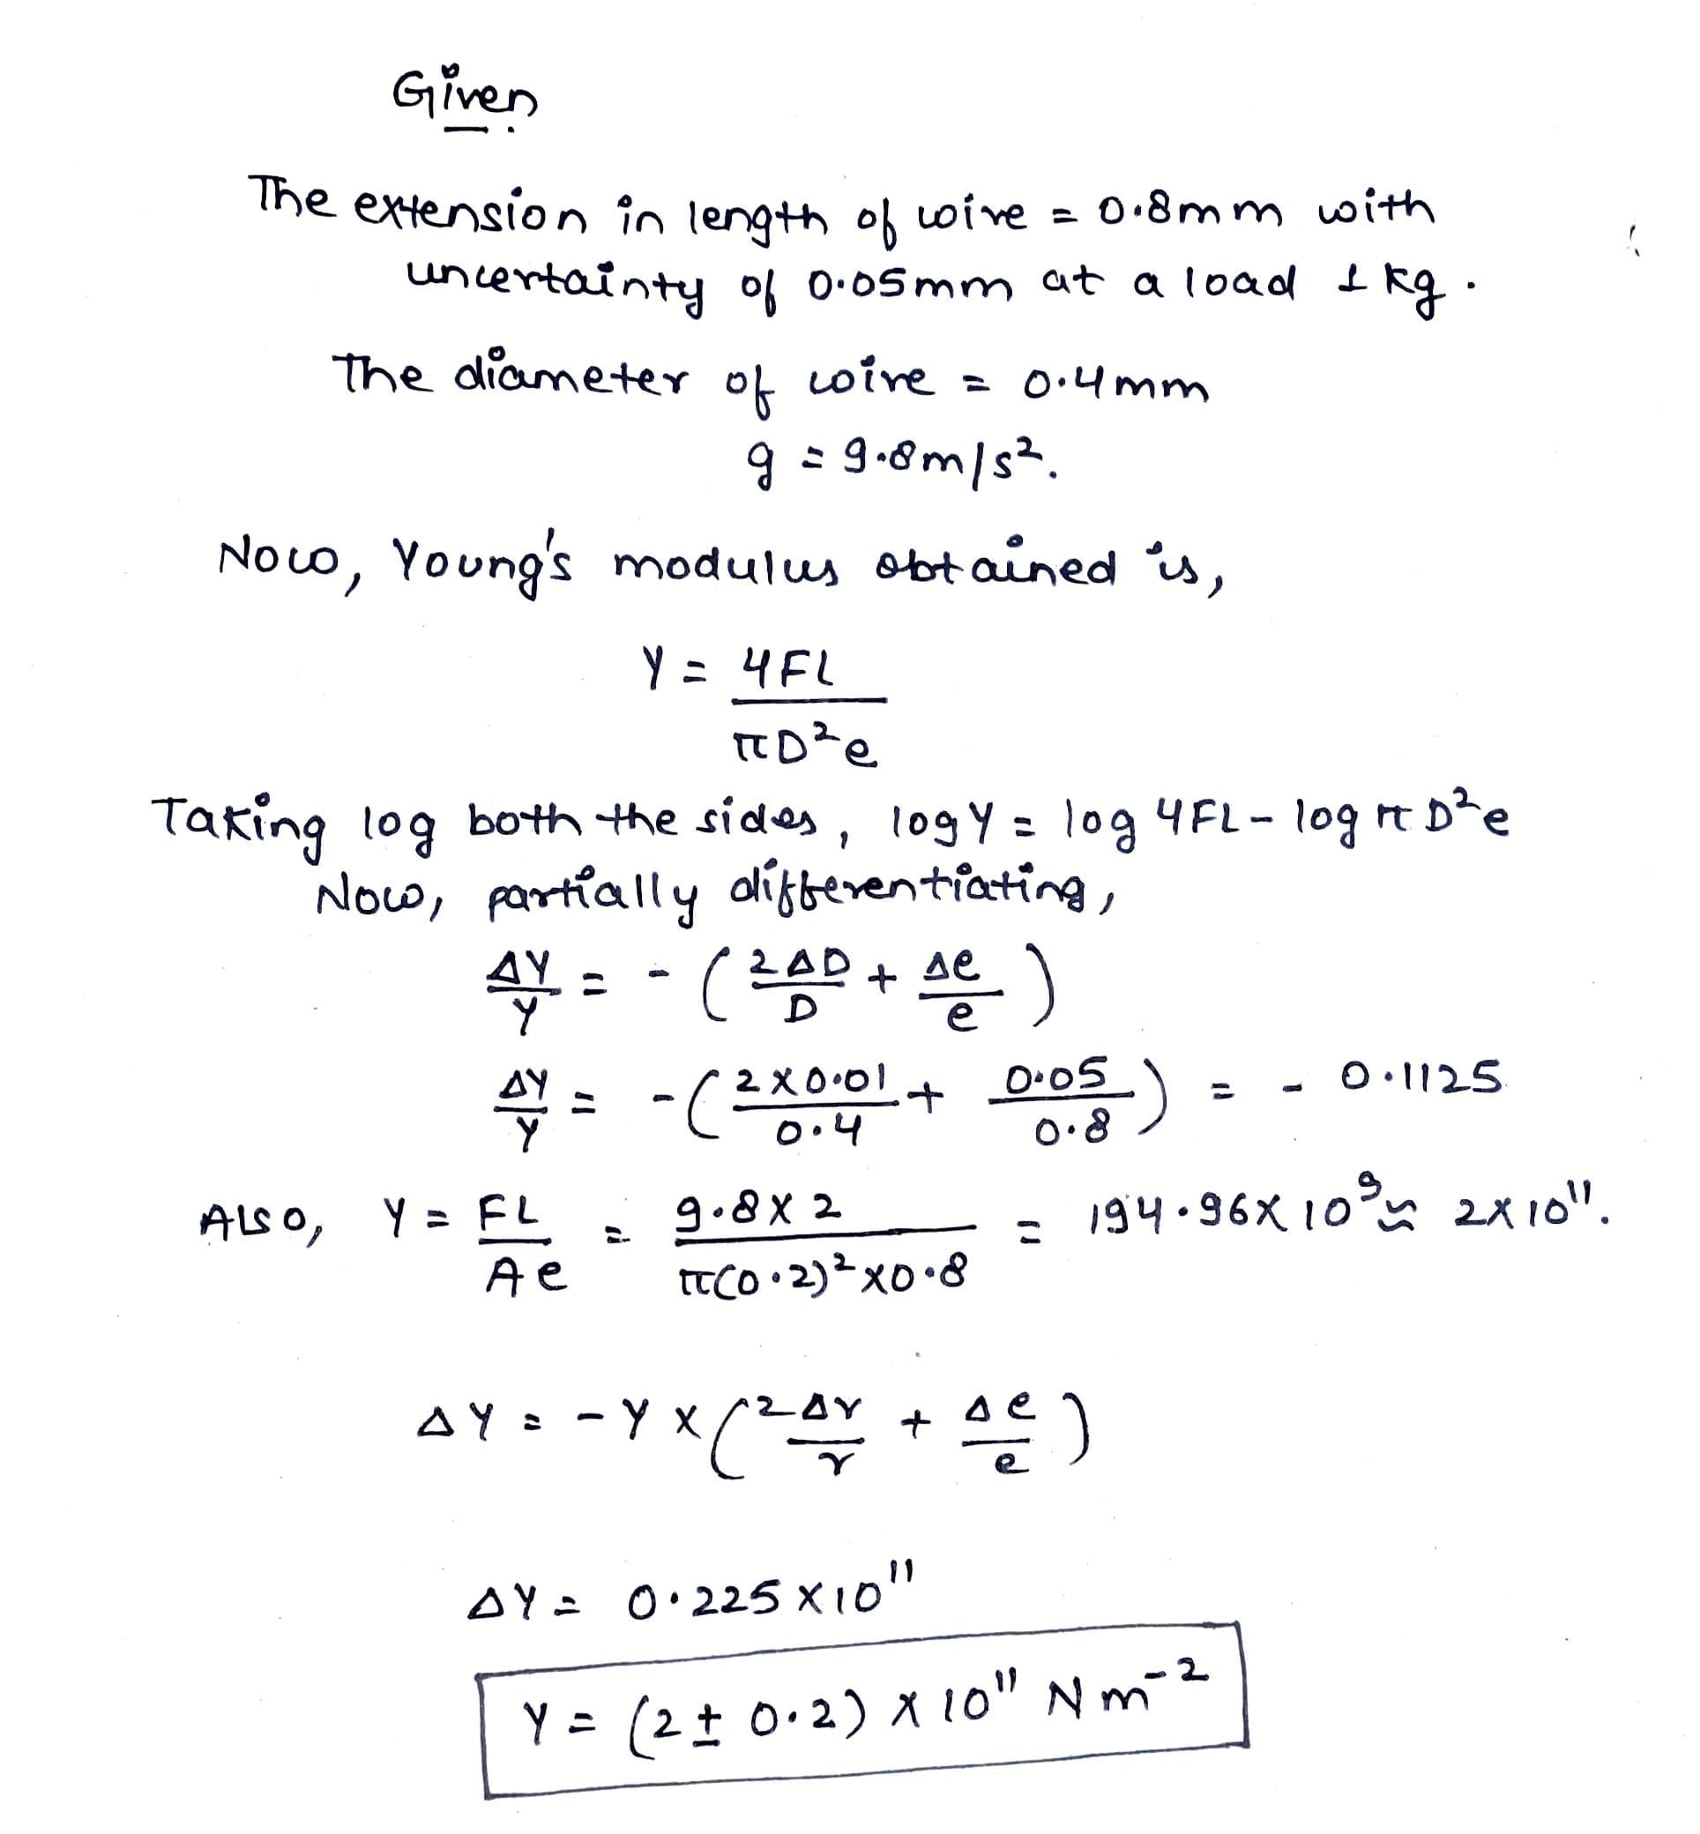 Given
The extension in length of wire = 0.8mm with
uncertainty of 0.05mm at a load 1 kg.
The diameter of wire = 0.4mm
g = 9.8m/s².
Now, Young's modulus obtained is,
Y = 4FL / πD²e
Taking log both the sides, log Y = log 4FL - log π D²e
Now, partially differentiating,
ΔY/Y = - (2ΔD/D + Δe/e)
ΔY/Y = - (2×0.01/0.4 + 0.05/0.8) = - 0.1125
Also, Y = FL/Ae = 9.8×2 / π(0.2)²×0.8 = 194.96×10⁹ ≈ 2×10¹¹.
ΔY = - Y × (2Δr/r + Δe/e)
ΔY = 0.225×10¹¹
Y = (2 ± 0.2) × 10¹¹ Nm⁻²